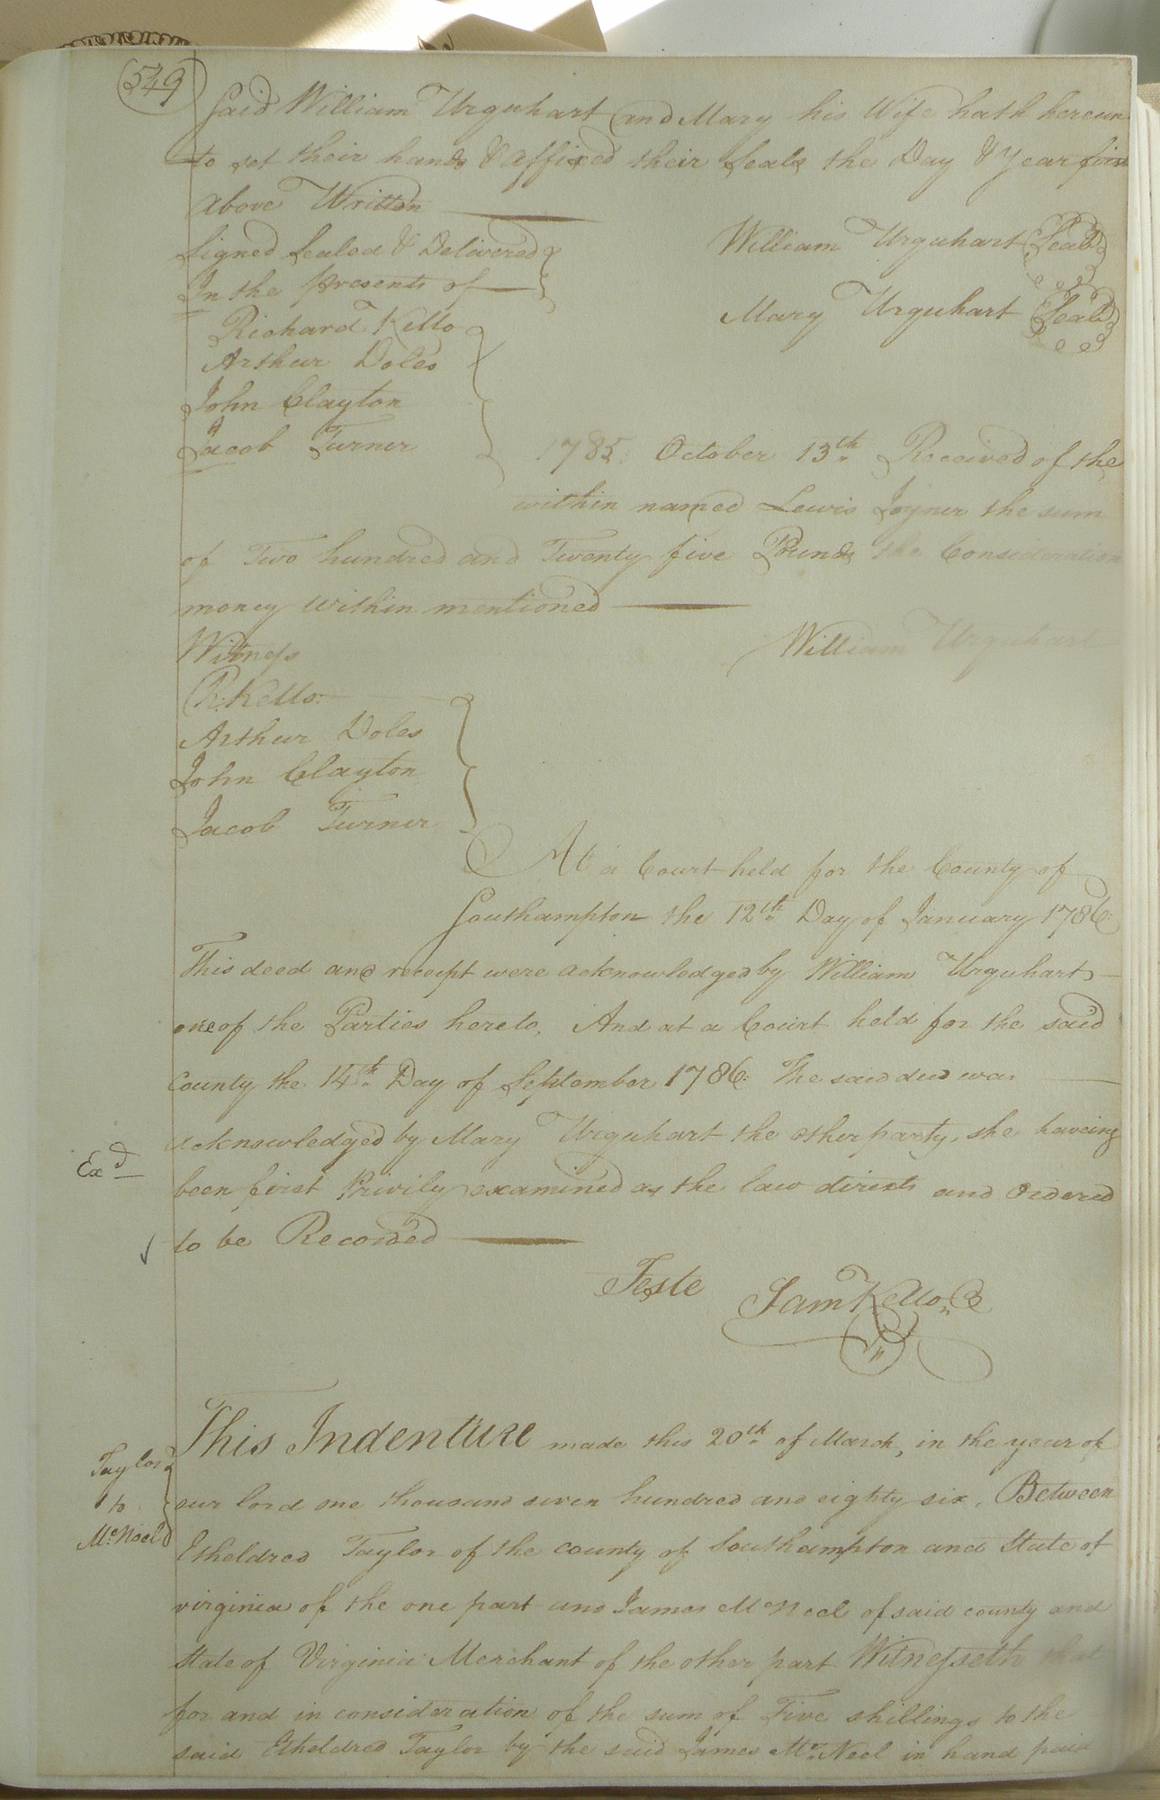 549
Said William Urquhart and Mary his Wife hath hereun
to set their hands & affixed their Seals the Day & Year first
above Written
Signed Sealed & Delivered
In the presents of
William Urquhart Seal
Mary Urquhart Seal
Richard Kello
Arthur Doles
John Clayton
Jacob Turner
1785. October 13th Received of the
within named Lewis Joyner the sum
of Two hundred and Twenty five Pounds the Consideration
money within mentioned
William Urquhart
Witness
R. Kello
Arthur Doles
John Clayton
Jacob Turner
At a Court held for the County of
Southampton the 12th Day of January 1786
This deed and receipt were acknowledged by William Urquhart
one of the Parties hereto. And at a Court held for the said
County the 14th Day of September 1786. The said deed was
acknowledged by Mary Urquhart the other party, she haveing
been first Privily examined as the law directs and Ordered
to be Recorded
Exd
Teste Sam Kello C
Taylor
to
McNeel
This Indenture made this 20th of March, in the year of
our lord one thousand seven hundred and eighty six, Between
Etheldred Taylor of the county of Southampton and State of
virginia of the one part and James McNeel of said county and
State of Virginia Merchant of the other part Witnesseth that
for and in consideration of the sum of Five shillings to the
said Etheldred Taylor by the said James McNeel in hand paid